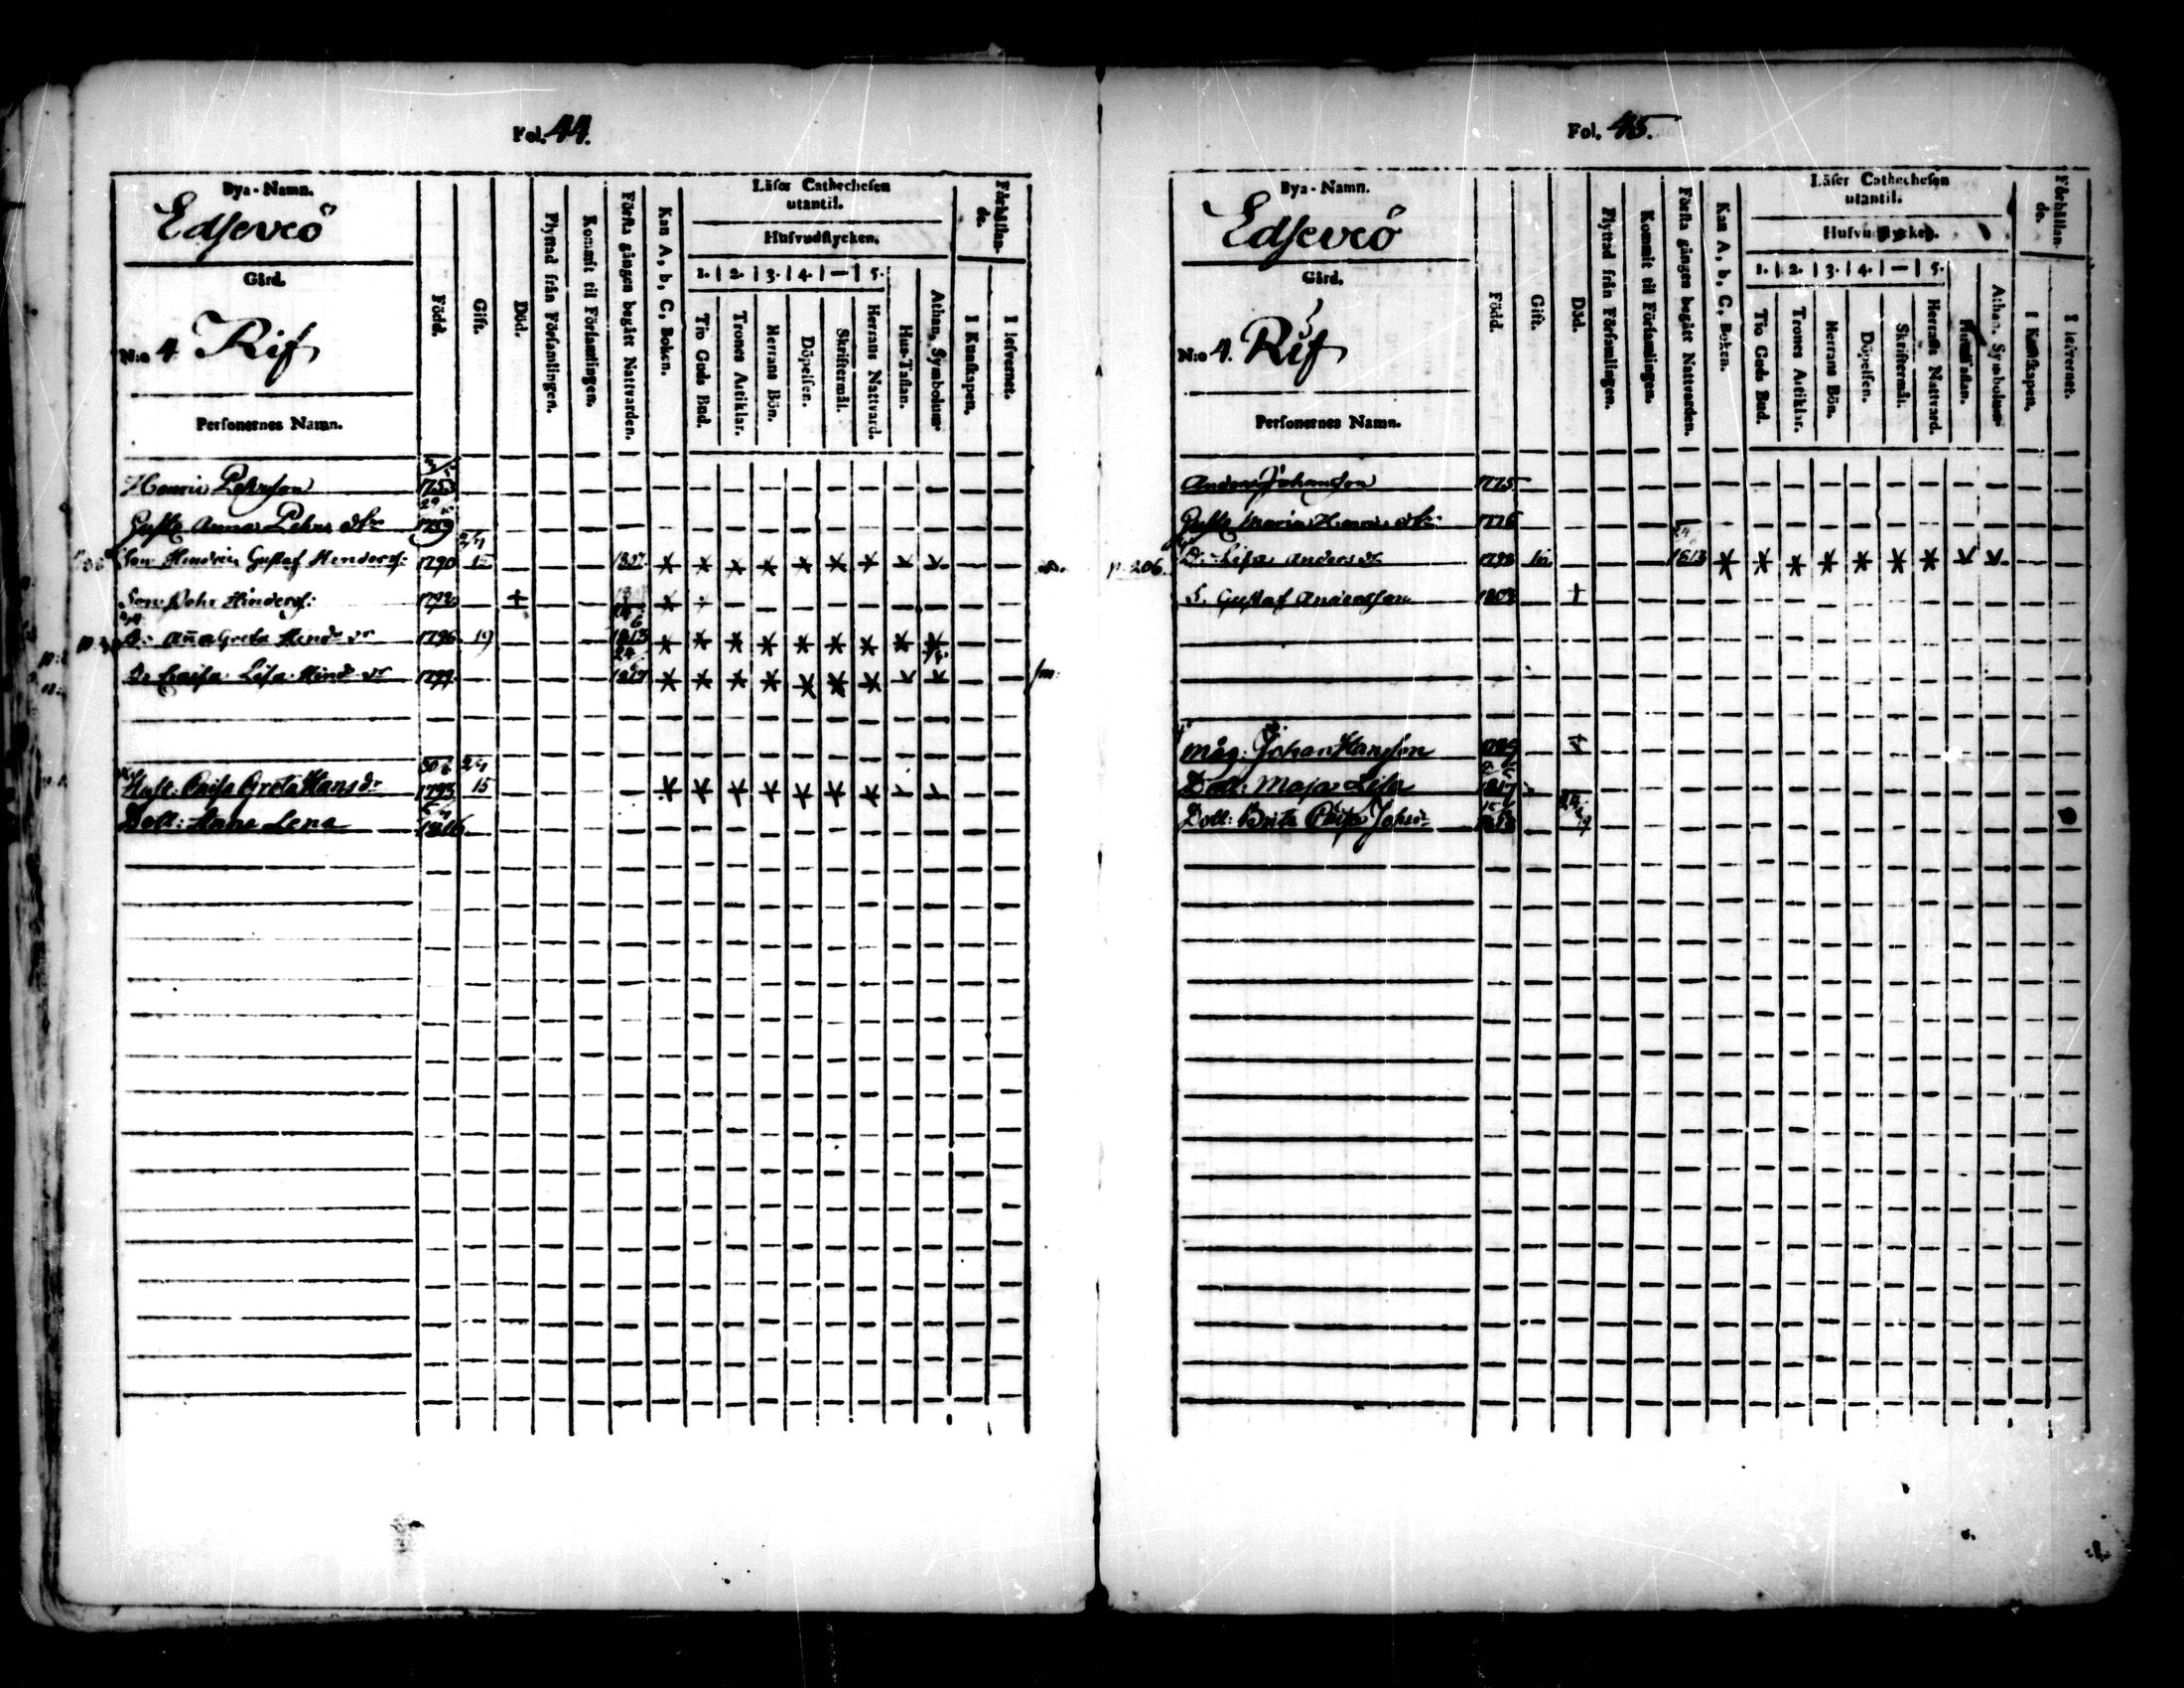 Fol. 44.
Bya-Namn.
Edseveö
Gård.
N:o 4 Rif
Personernes Namn.
Född.
Gift.
Död.
Flyttad från Församlingen.
Kommit til Församlingen.
Första gången begått Nattvarden.
Kan A, b, C, Boken.
Läser Cathechesen
utantil.
Hufvudstycken.
1. 2. 3. 4. — 5.
Tio Guds Bud.
Trones Artiklar.
Herrans Bön.
Döpelsen.
Skriftermål.
Herrans Nattvard.
Hus-Taflan.
Athan. Symbolum.
Förhållan-
de.
I Kunskapen.
I lefvernet.
Henric Pehrson 1753
Gusta Anna Pehrs dr 1759
Son Hendric Gustaf Hendersf: 1790 15
Son Pehr Hindersf: 1792 +
D: Aña Greta Hend dr 1796 19 1813
D: Caisa Lisa Hind dr 1799 1817
Hust: Caisa Greta Hansdr 1793 15
Dott: Hana Lena 1816
Fol. 45.
Bya-Namn.
Edseveö
Gård.
N:o 4. Rif
Personernes Namn.
Född.
Gift.
Död.
Flyttad från Församlingen.
Kommit til Församlingen.
Första gången begått Nattvarden.
Kan A, b, C, Boken.
Läser Cathechesen
utantil.
Hufvudstycken.
1. 2. 3. 4. — 5.
Tio Guds Bud.
Trones Artiklar.
Herrans Bön.
Döpelsen.
Skriftermål.
Herrans Nattvard.
Hus-Taflan.
Athan. Symbolum.
Förhållan-
de.
I Kunskapen.
I lefvernet.
Anders Johanson 1775
Gusta Maria Henrics dr 1776
p. 206. D. Lisa Anders dr 1798 16 1813
S. Gustaf Andersson 1803 +
Måg: Johan Hanson +
Dott: Maja Lisa 1817
Dott: Brita Caisa Johsdr 1818